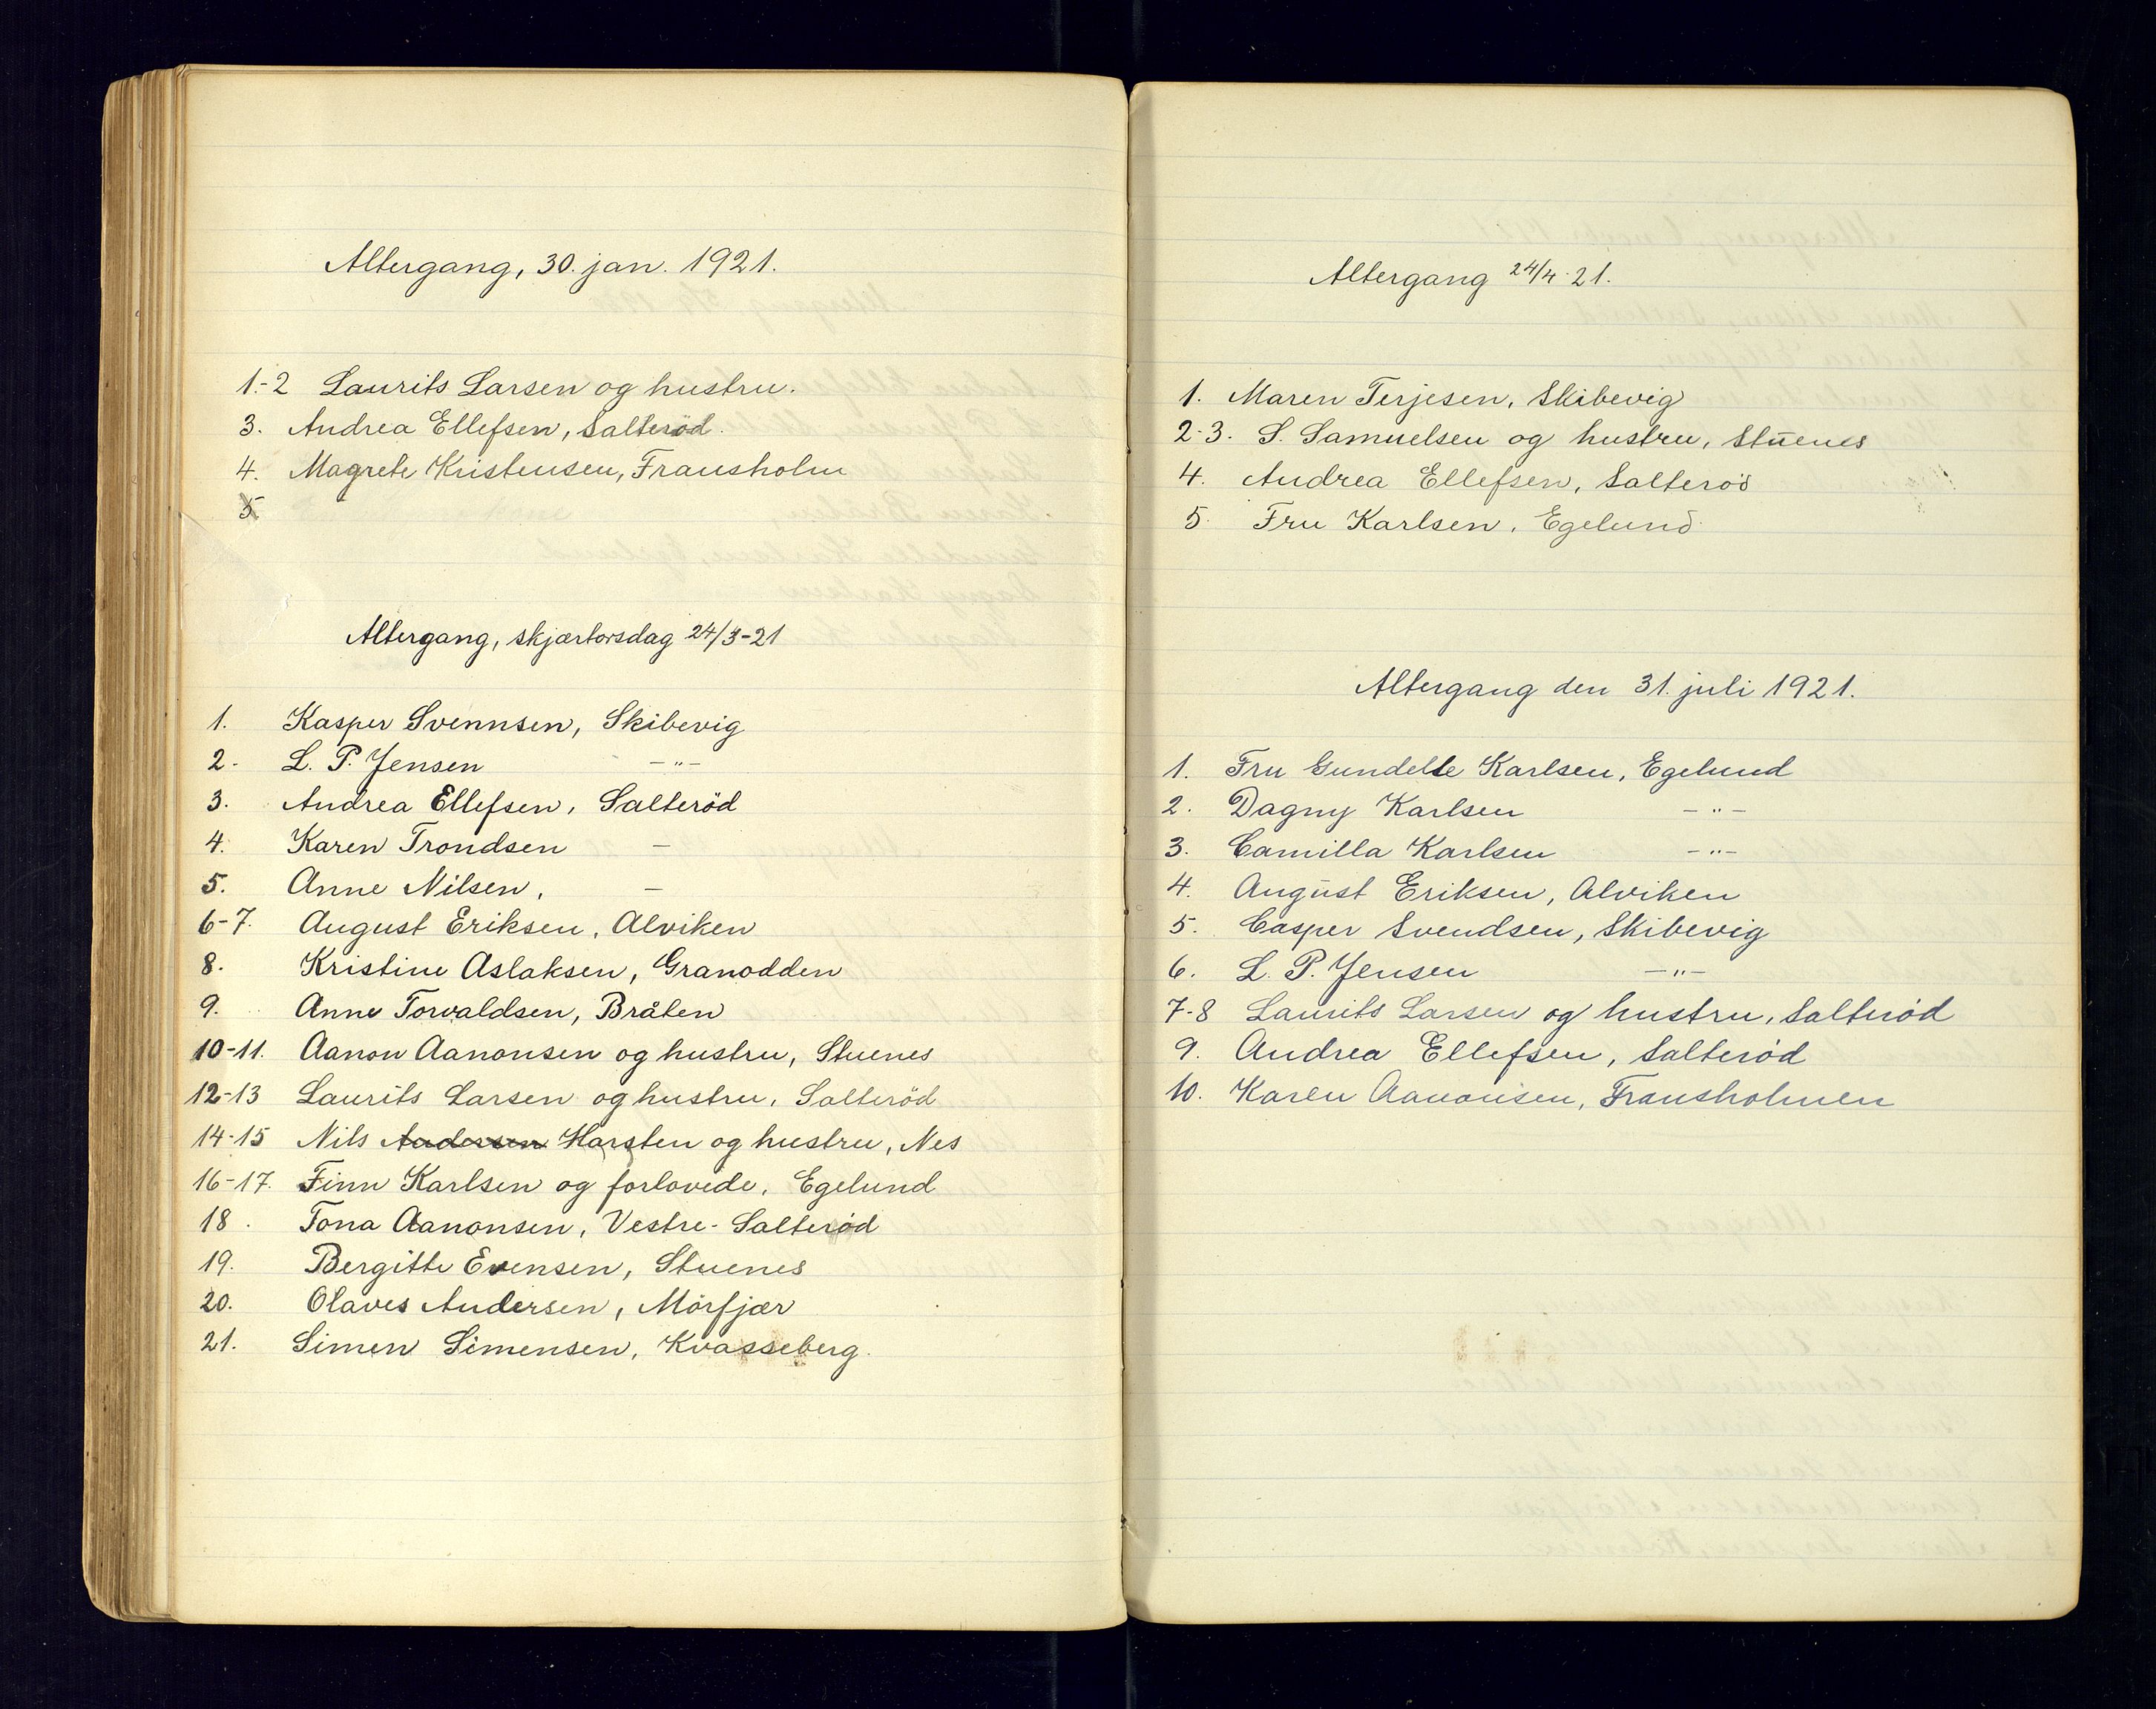 Altergang, 30. jan. 1921.
1.-2 Laurits Larsen og hustru.
3. Andrea Ellefsen, Salteröd.
4. Magrete Kristensen, Fransholm
5.
Altergang, skjærtorsdag 24/3-21
1. Kasper Svennsen, Skibevig
2. L. P. Jensen -"-
3. Andrea Ellefsen, Salteröd
4. Karen Trondsen -
5. Anne Nilsen, -
6-7. August Eriksen, Alviken
8. Kristine Aslaksen, Granodden
9. Anne Torvaldsen, Bråten
10-11. Aanon Aanonsen og hustru, Stuenes
12-13 Laurits Larsen og hustru, Salteröd
14-15 Nils Andersen Harsten og hustru, Nes
16-17. Finn Karlsen og forlovede, Egelund
18. Tona Aanonsen, Vestre-Salteröd
19. Bergitte Evensen, Stuenes
20. Olaves Andersen, Mörfjær
21. Simen Simensen, Kvasseberg.
Altergang 24/4-21.
1. Maren Terjesen, Skibevig
2-3. S. Samuelsen og hustru, Stuenes
4. Andrea Ellefsen, Salteröd
5. Fru Karlsen, Egelund
Altergang den 31. juli 1921.
1. Fru Gundelle Karlsen, Egelund
2. Dagny Karlsen -"-
3. Camilla Karlsen -"-
4. August Eriksen, Alviken
5. Casper Svendsen, Skibevig
6. L. P. Jensen -"-
7-8 Laurits Larsen og hustru, Salteröd
9. Andrea Ellefsen, Salteröd
10. Karen Aanonsen, Fransholmen